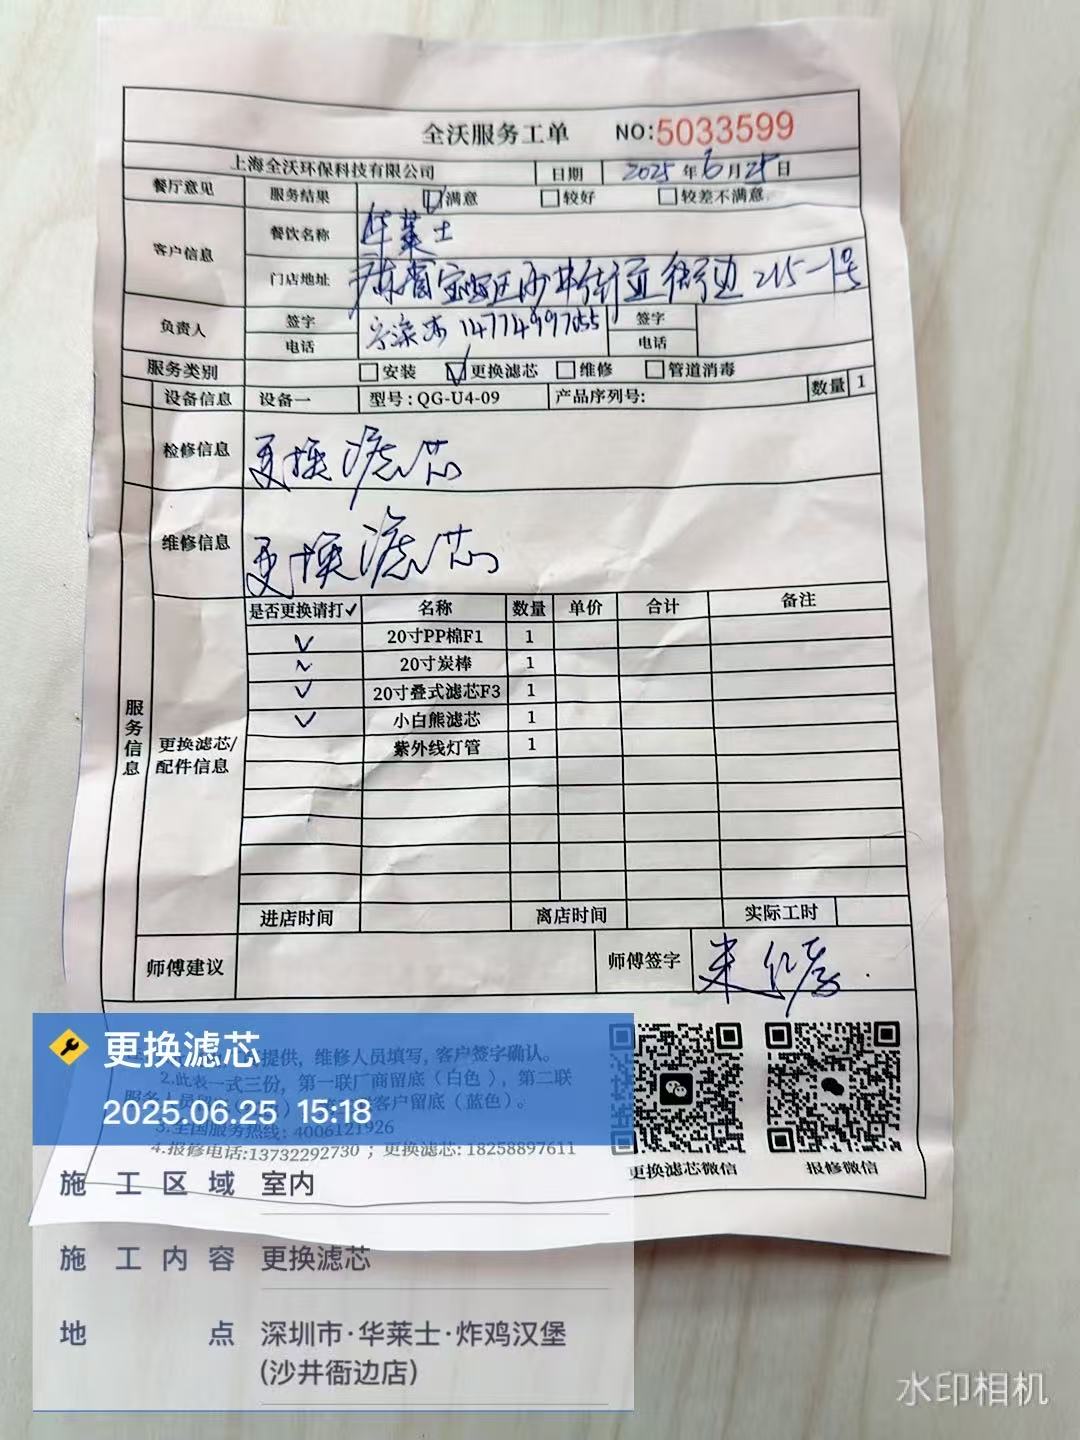 全沃服务工单 NO:5033599
上海全沃环保科技有限公司 日期 2025年6月25日
餐厅意见 服务结果 满意 较好 较差不满意
客户信息 餐饮名称 华莱士
门店地址 宝安区沙井街道衙边215-1号
负责人 签字 签字
电话 14774997055 电话
服务类别 安装 更换滤芯 维修 管道消毒
设备信息 设备一 型号:QG-U4-09 产品序列号: 数量 1
检修信息 更换滤芯
维修信息 更换滤芯
服务信息
更换滤芯/
配件信息
是否更换请打✓ 名称 数量 单价 合计 备注
✓ 20寸PP棉F1 1
✓ 20寸炭棒 1
✓ 20寸叠式滤芯F3 1
✓ 小白熊滤芯 1
紫外线灯管 1
进店时间 离店时间 实际工时
师傅建议 师傅签字
提供，维修人员填写，客户签字确认。
2.此表一式三份，第一联厂商留底（白色），第二联
客户留底（蓝色）。
3.全国服务热线：4006121926
4.报修电话:13732292730；更换滤芯:18258897611
更换滤芯微信 报修微信
更换滤芯
2025.06.25 15:18
施工区域 室内
施工内容 更换滤芯
地点 深圳市·华莱士·炸鸡汉堡
(沙井衙边店)
水印相机